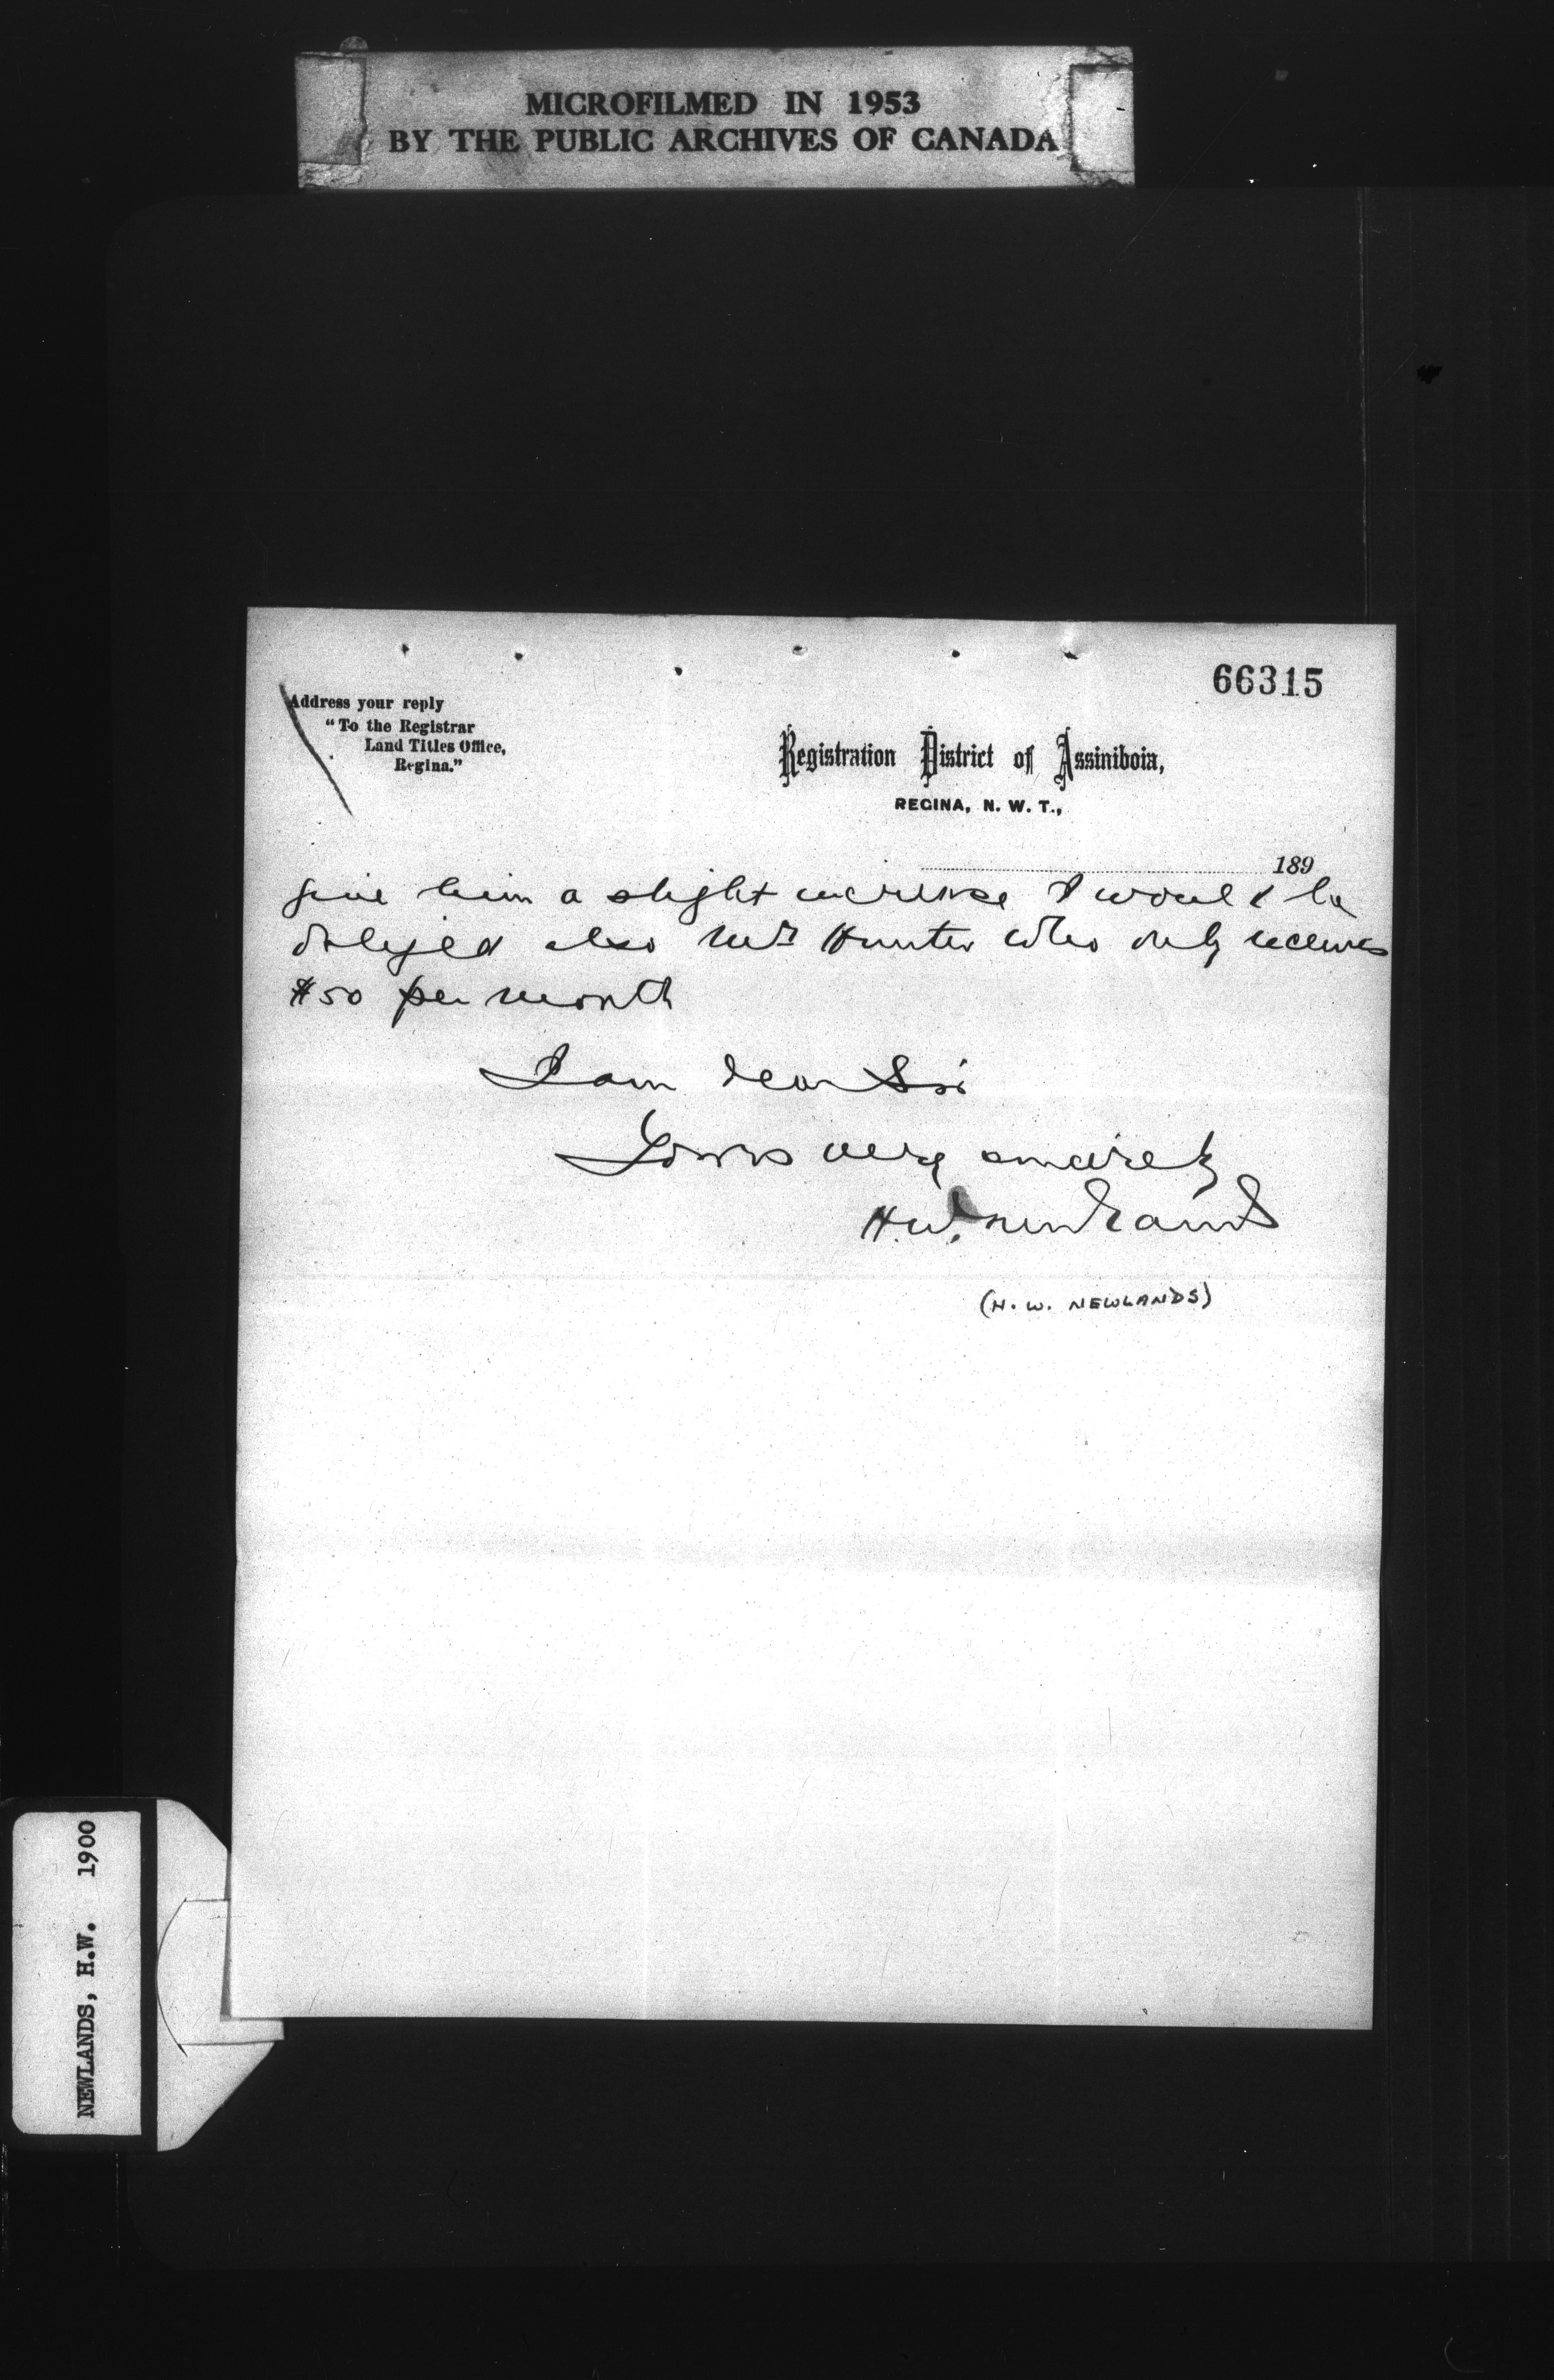 MICROFILMED IN 1953
BY THE PUBLIC ARCHIVES OF CANADA
66315
Address your reply
"To the Registrar
Land Titles Office,
Regina."
Registration District of Assiniboia,
REGINA, N. W. T.,
189
give him a slight increase I would be
obliged also Mr Hunter who only receives
$50 per month
I am dear Sir
Yours very sincerely
H.W. Newlands
(H. W. NEWLANDS)
NEWLANDS, H.W. 1900